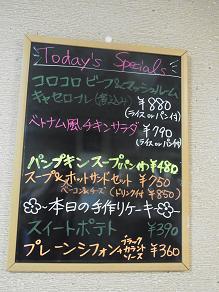 Today's Specials
コロコロ ビーフ&マッシュルーム
キャセロール(煮込み) ¥880
(ライス or パン付)
ベトナム風チキンサラダ ¥790
(ライス or パン付)
パンプキンスープ(パン付)¥480
スープ&ホットサンドセット ¥750
ベーコン&チーズ (ドリンク付¥850)
~本日の手作りケーキ~
スイートポテト ¥390
プレーンシフォン ブラックカラントソース ¥360